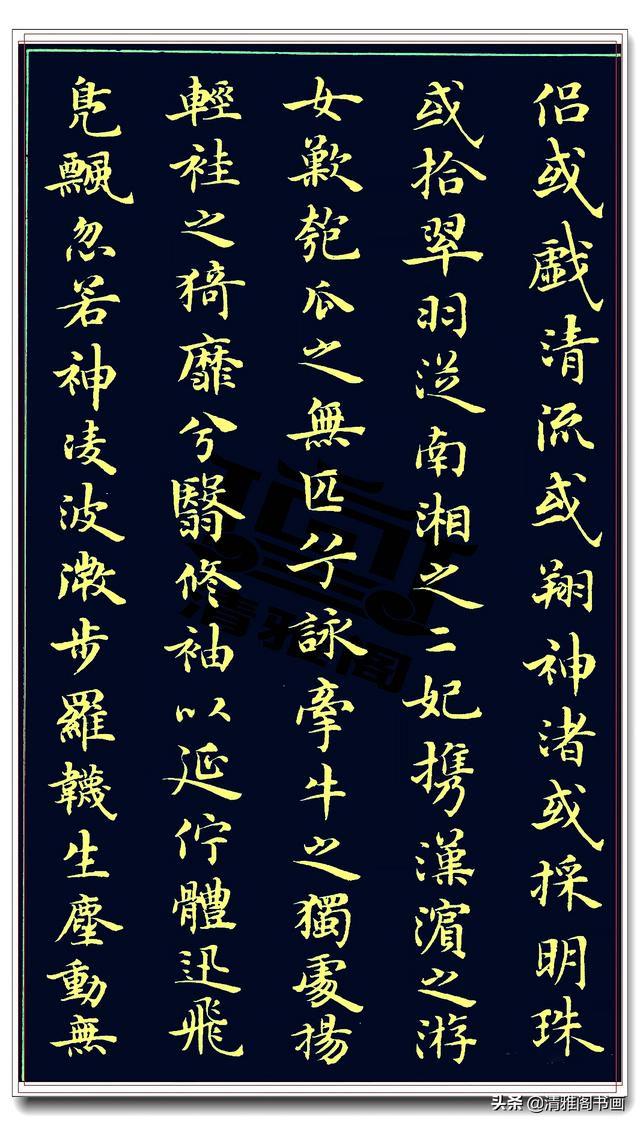 侣或戲清流或翔神渚或採明珠
或拾翠羽從南湘之二妃攜漢濱之游
女歎匏瓜之無匹兮詠牽牛之獨處揚
輕袿之猗靡兮翳修袖以延佇體迅飛
鳧飄忽若神凌波微步羅韈生塵動無
清雅阁
头条 @清雅阁书画